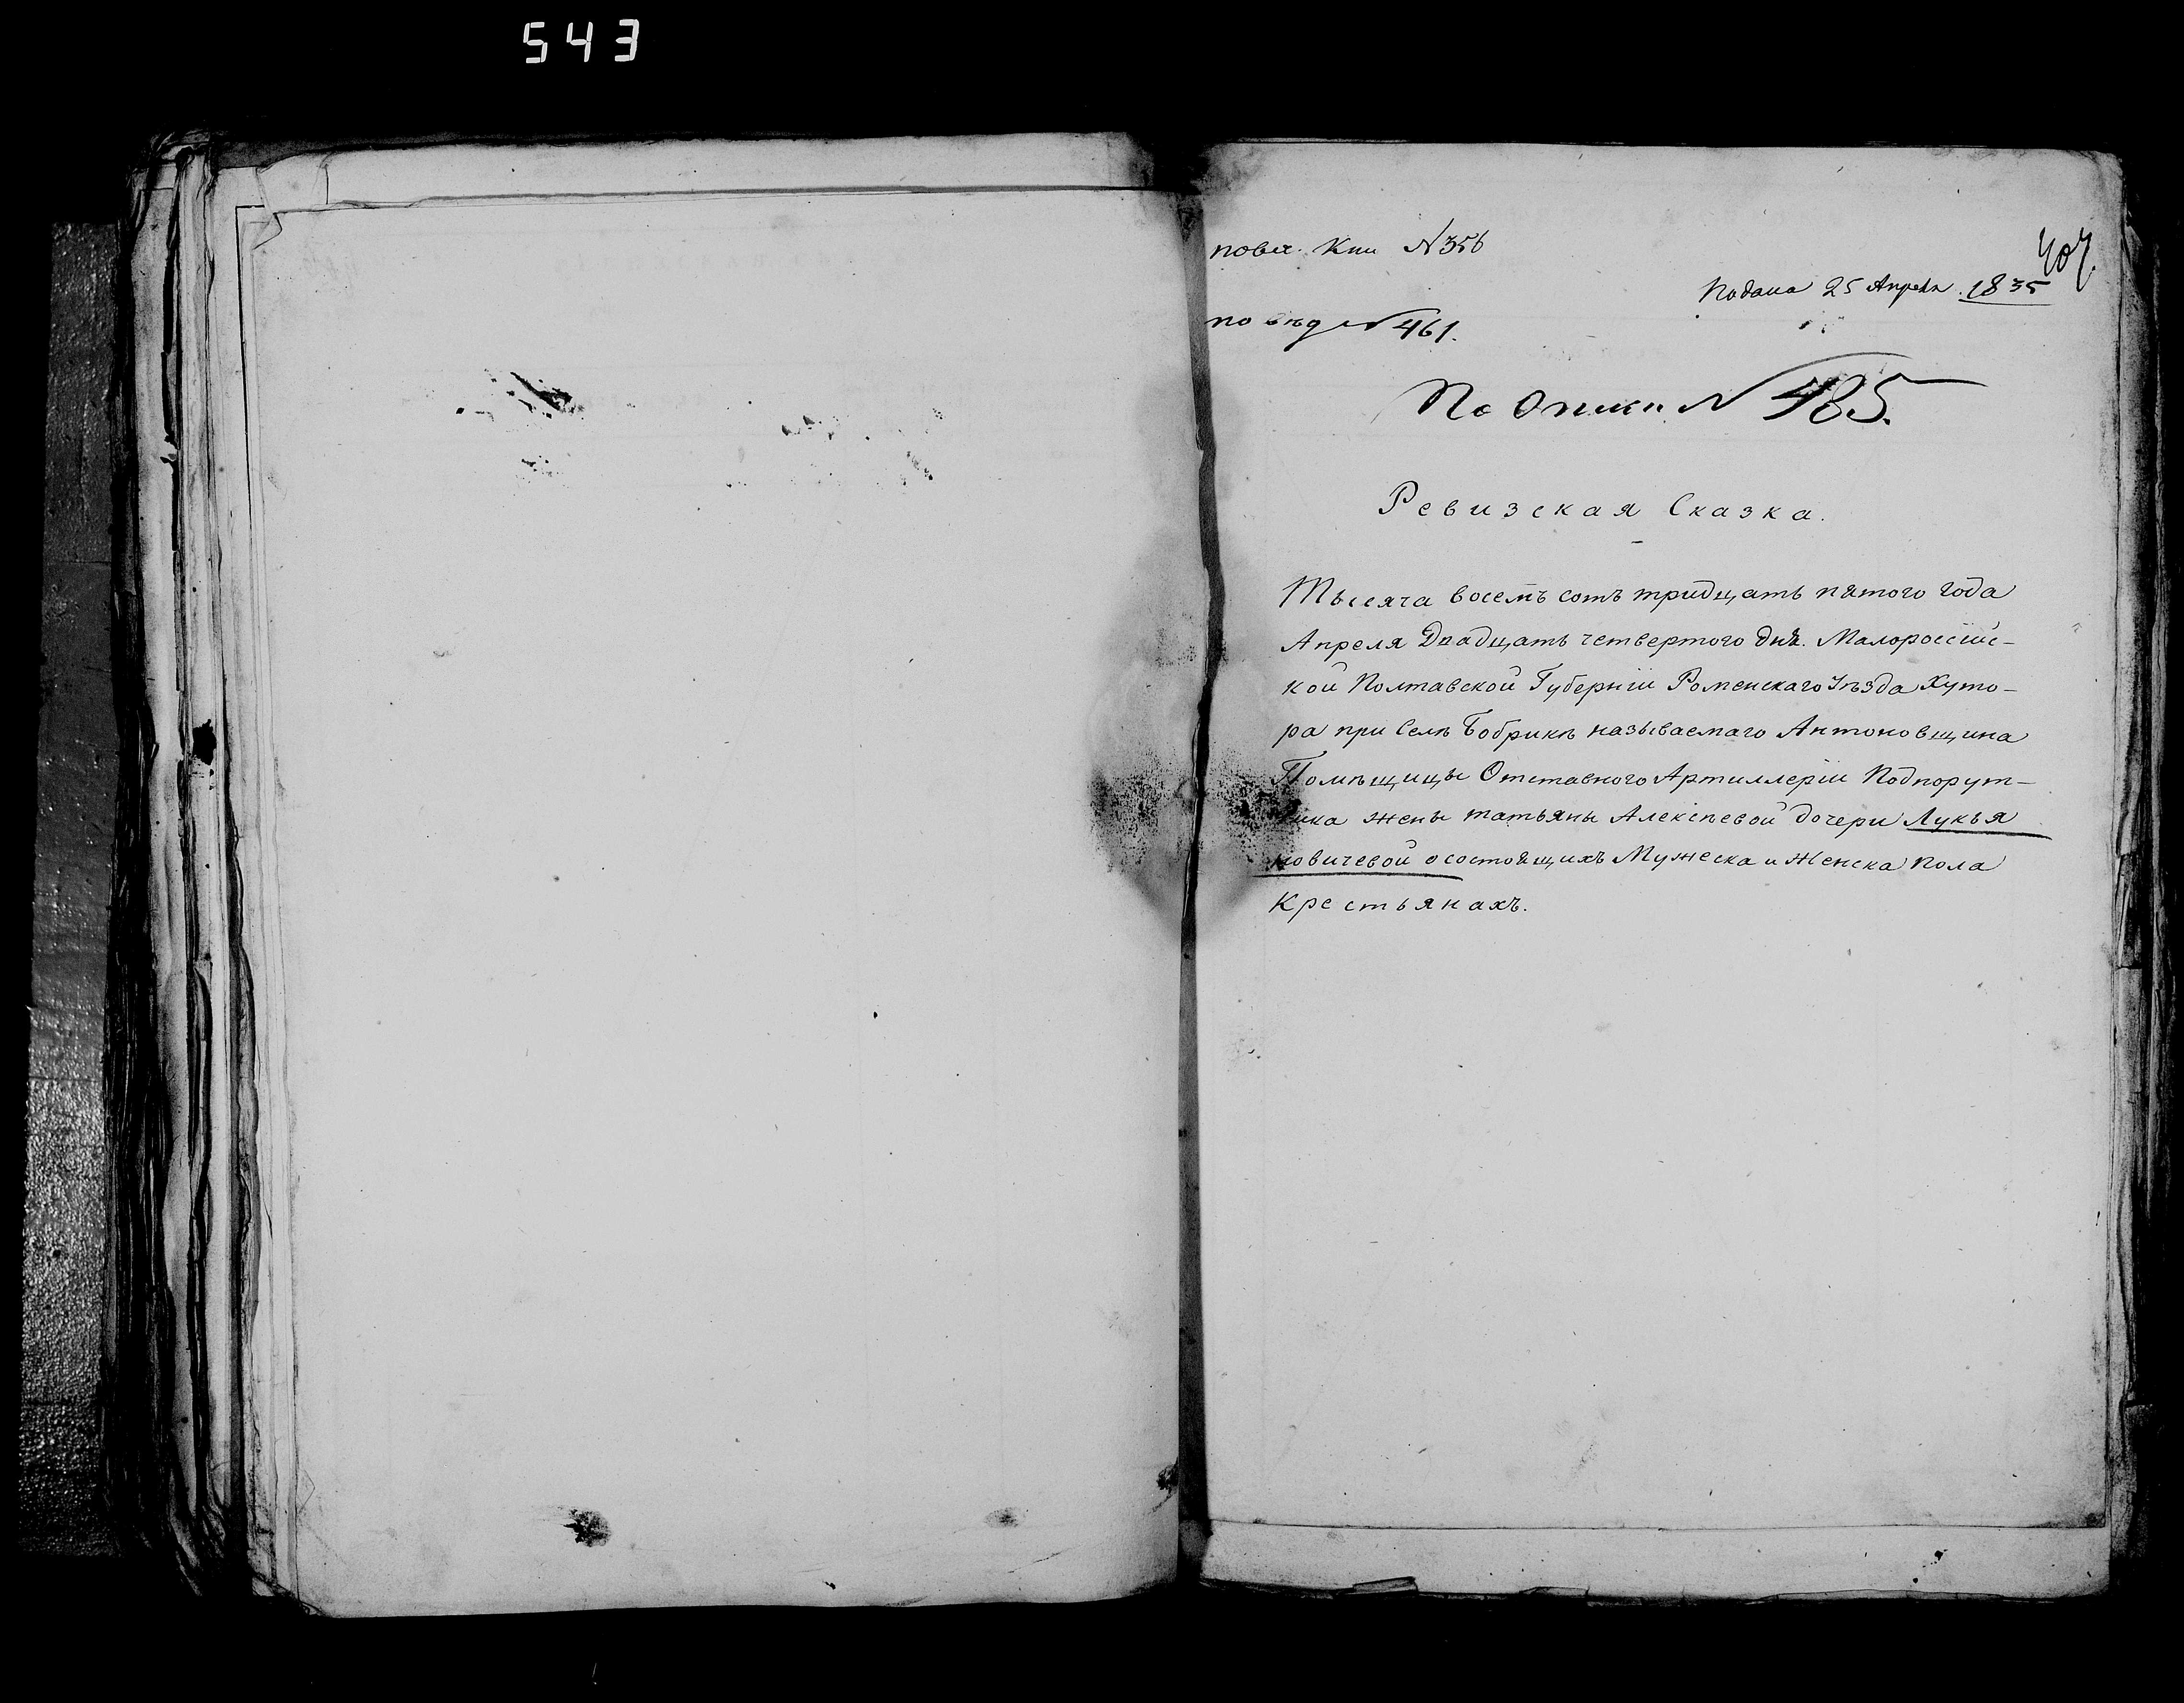 543
407.
повѣ. Кни №356
Подана 25 Апреля 1835
по вѣд №461.
По Описи №485.
Ревизская Сказка.
Тысяча восемъ сотъ тридцать пятого года
Апреля Двадцать четвертого дня. Малороссійс-
кой Полтавской Губерніи Роменскаго Уѣзда Хуто-
ра при Селѣ Бобрикѣ называемаго Антоновщина
Помѣщицы Отставного Артиллеріи Подпорут-
чика жены татьяны Алексѣевой дочери Лукья
новичевой о состоящихъ Мужеска и Женска пола
Крестьянахъ.